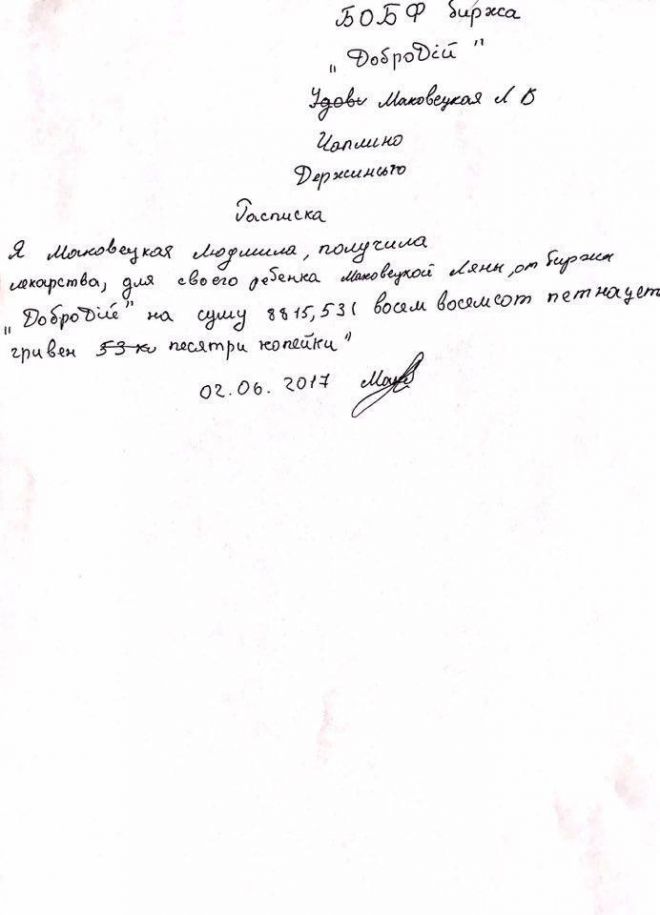 БОБФ биржа
„ДоброДій"
Удови Маковецкая Л В
Чаплино
Держинсого
Расписка
Я Маковецкая Людмила, получила
лекарства, для своего ребенка Маковецкой Лянн, от биржи
„ДоброДій" на суму 8815,53 ( восем восемсот петнацет
гривен 53 к песятри копейки"
02.06.2017